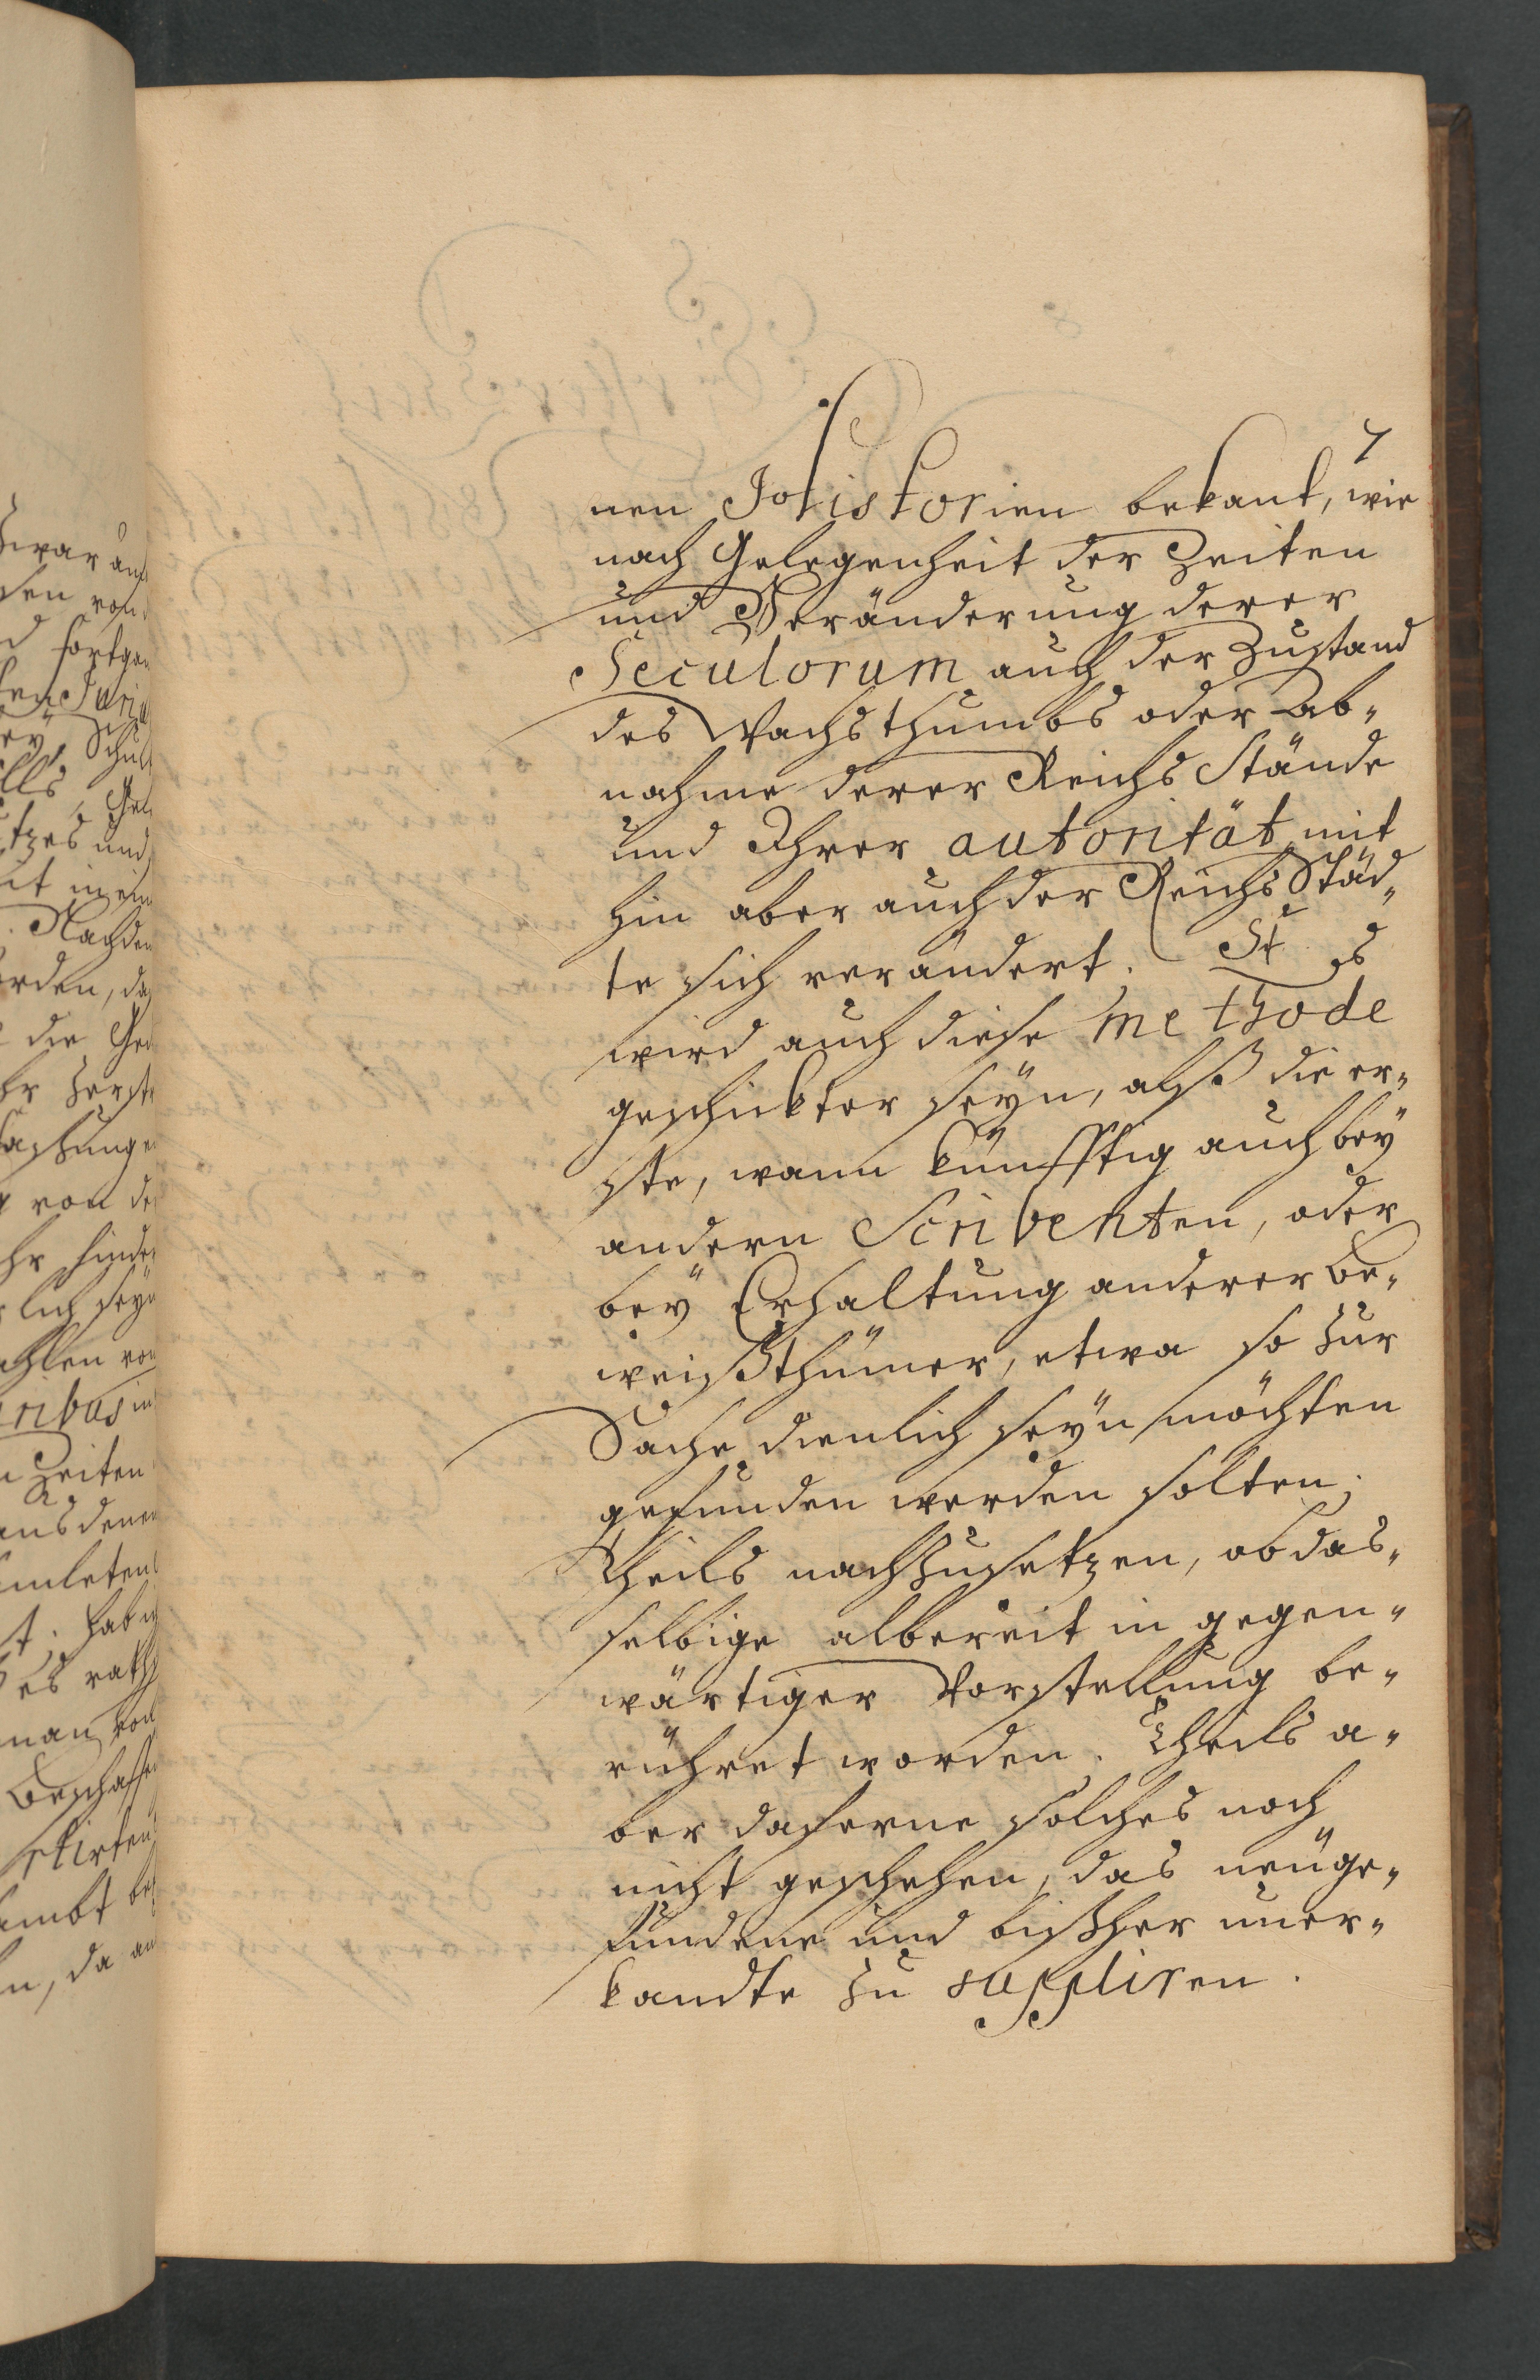 7
nen Historien bekant, wie
nach Gelegenheit der Zeiten
und Veränderung derer
Seculorum auch der Zustand
des Wachsthumbs oder Ab-
nahme derer Reichs Stände
und Ihrer autorität mit
hin aber auch der Reichs Städ-
te sich verändert. St. es
wird auch diese methode
geschickter seÿn, alß die er-
ste, wann künfftig auch beÿ
andern Scribenten, oder
beÿ Erhaltung anderer Be-
weißthümer, etwa so zur
Sache dienlich seÿn möchten
gefunden werden solten.
Theils nachzusetzen, ob das-
selbige albereit in gegen-
wärtiger Vorstellung be-
rühret worden. Theils a-
ber daferne solches noch
nicht geschehen, das neüge-
fundene und bißher uner-
kandte zu suppliren.